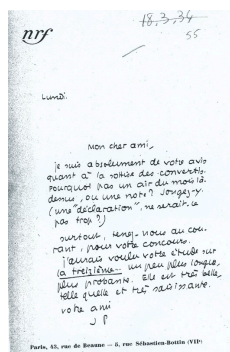 nrf
18, 3, 34
55
Lundi.
Mon cher ami,
je suis absolument de votre avis
quant à la sottise des convertis.
Pourquoi pas un air du mois là-
dessus, ou une note? Songez-y.
(une "déclaration", ne serait-ce
pas trop?)
Surtout, tenez-vous au cou-
rant, pour votre concours.
j'aurais voulu votre étude sur
la treizième un peu plus longue,
plus probante. Elle est très belle,
telle quelle et très saisissante.
votre ami
J P
Paris, 43, rue de Beaune — 5, rue Sébastien-Bottin (VIIᵉ)